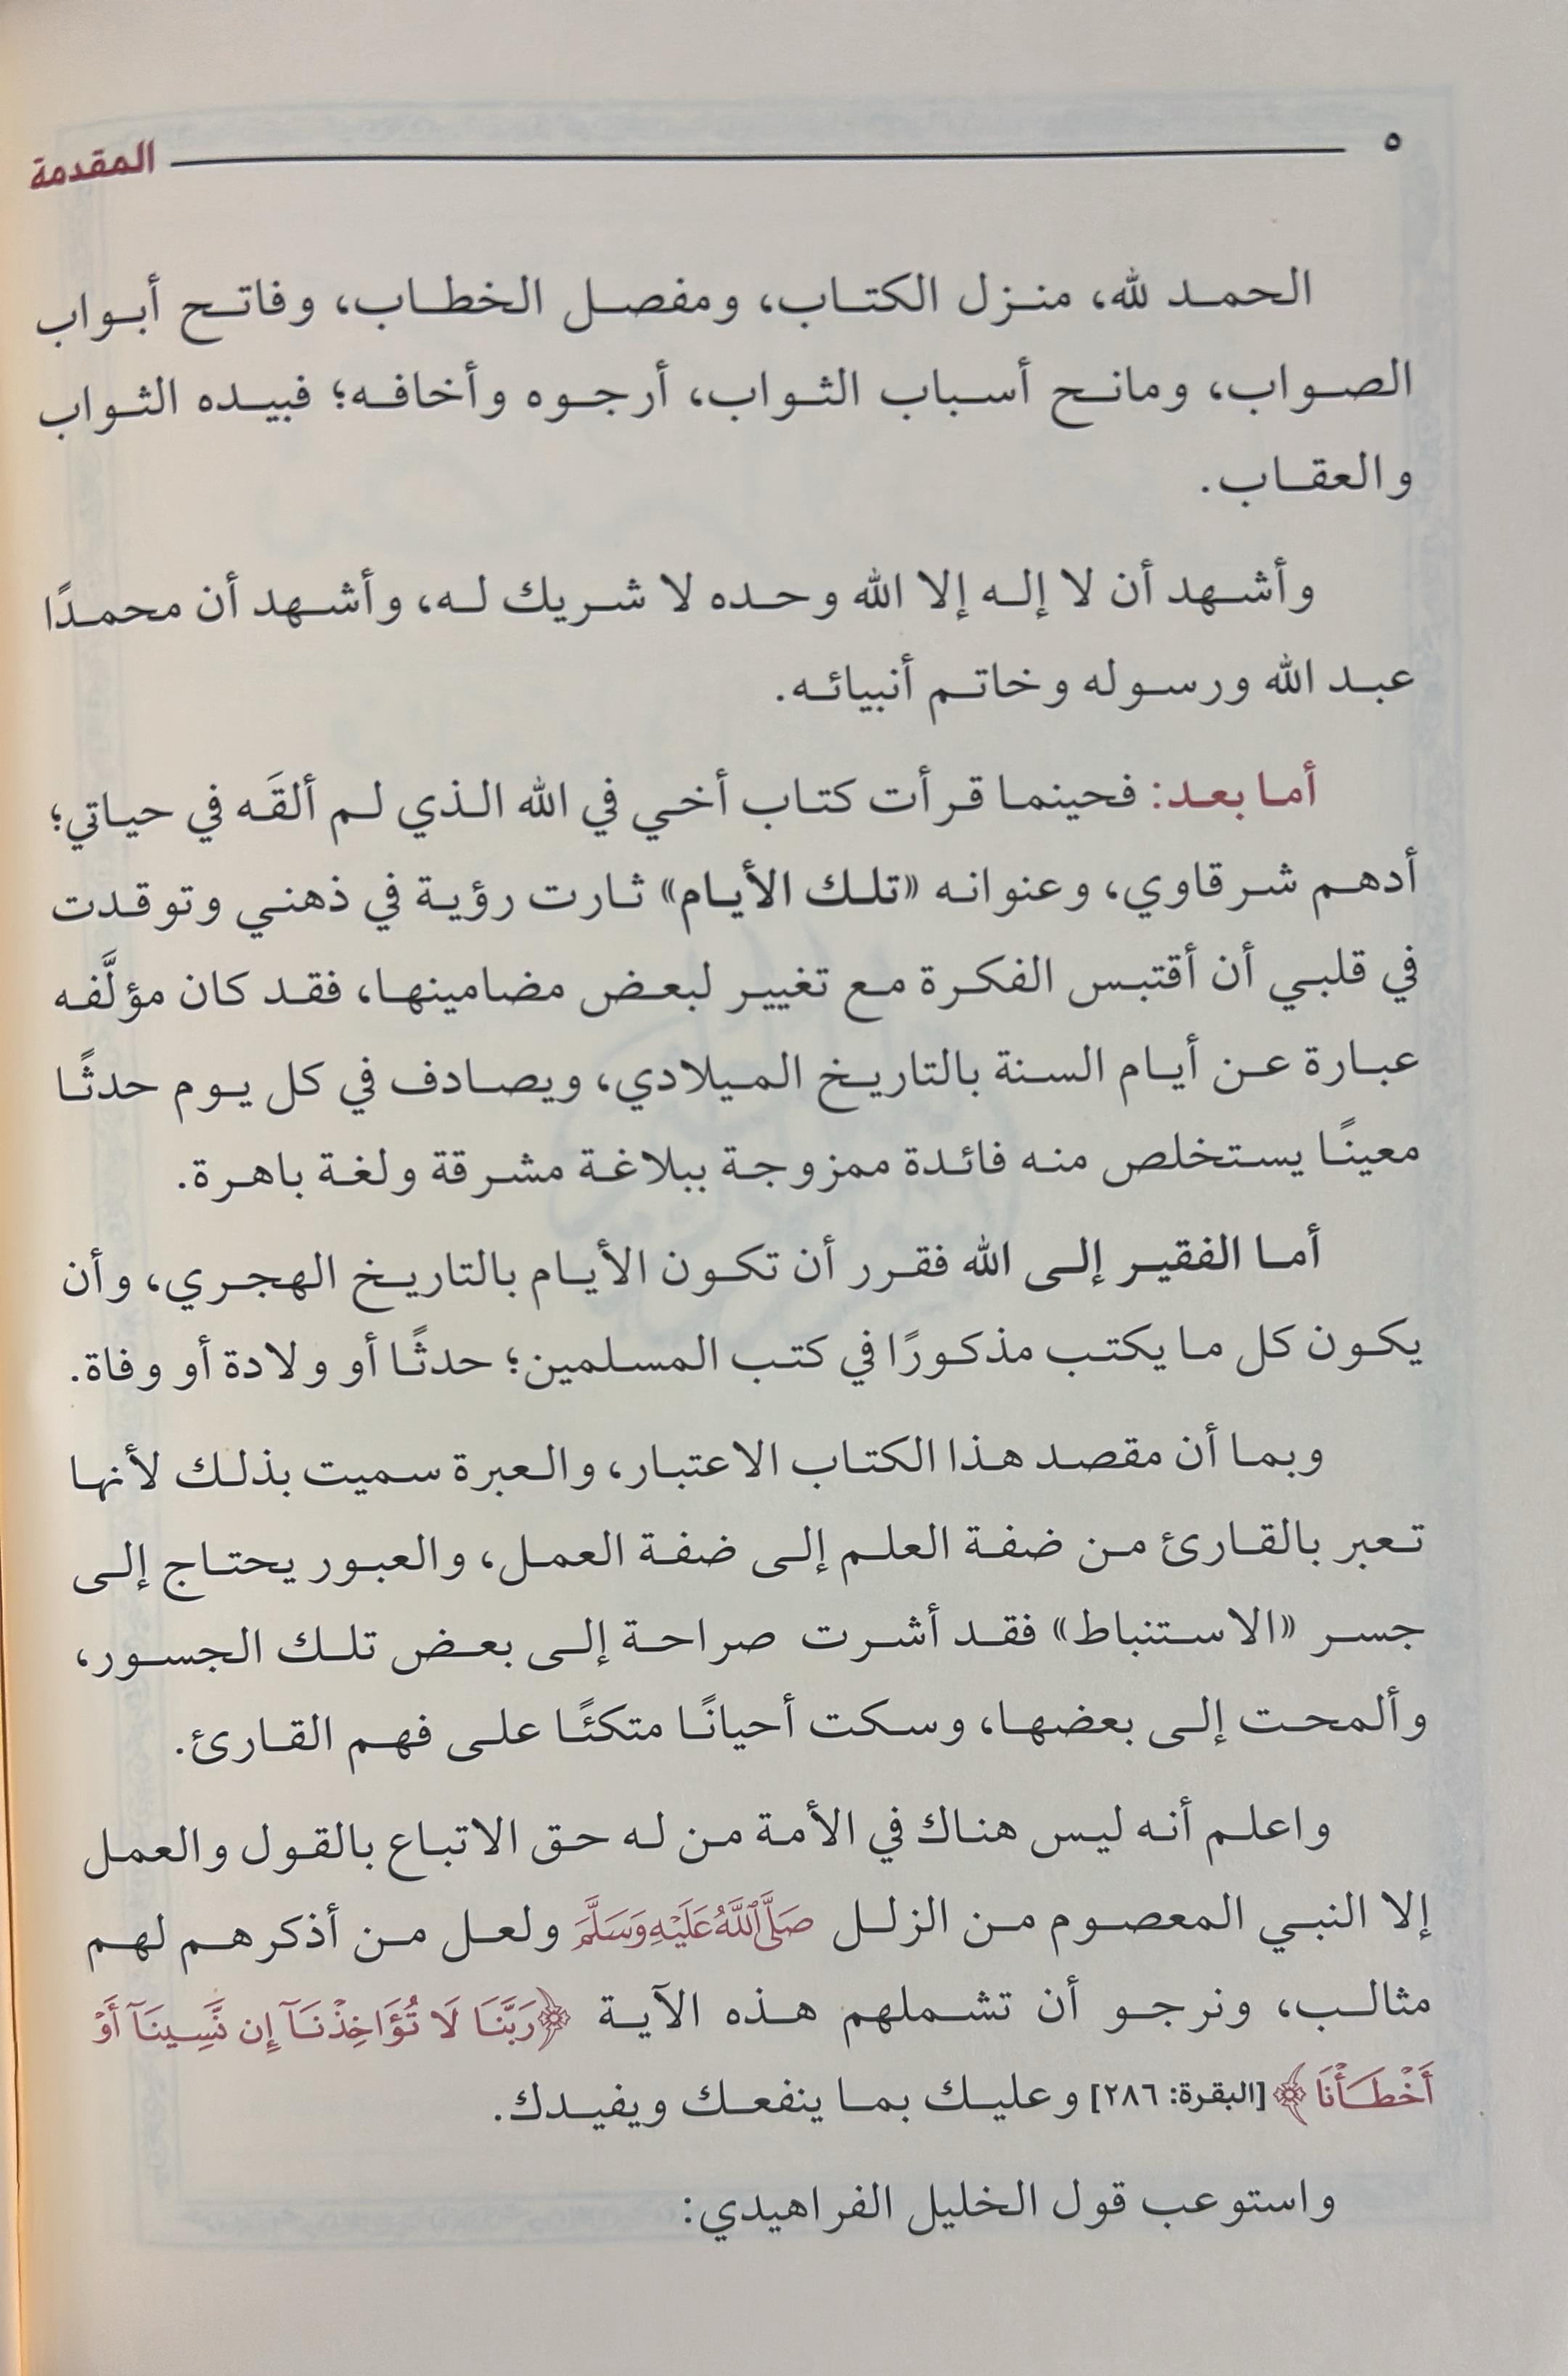 ٥
المقدمة
الحمد لله، منزل الكتاب، ومفصل الخطاب، وفاتح أبواب
الصواب، ومانح أسباب الثواب، أرجوه وأخافه؛ فبيده الثواب
والعقاب.
وأشهد أن لا إله إلا الله وحده لا شريك له، وأشهد أن محمدًا
عبد الله ورسوله وخاتم أنبيائه.
أما بعد: فحينما قرأت كتاب أخي في الله الذي لم ألقَه في حياتي؛
أدهم شرقاوي، وعنوانه «تلك الأيام» ثارت رؤية في ذهني وتوقدت
في قلبي أن أقتبس الفكرة مع تغيير لبعض مضامينها، فقد كان مؤلَّفه
عبارة عن أيام السنة بالتاريخ الميلادي، ويصادف في كل يوم حدثًا
معينًا يستخلص منه فائدة ممزوجة ببلاغة مشرقة ولغة باهرة.
أما الفقير إلى الله فقرر أن تكون الأيام بالتاريخ الهجري، وأن
يكون كل ما يكتب مذكورًا في كتب المسلمين؛ حدثًا أو ولادة أو وفاة.
وبما أن مقصد هذا الكتاب الاعتبار، والعبرة سميت بذلك لأنها
تعبر بالقارئ من ضفة العلم إلى ضفة العمل، والعبور يحتاج إلى
جسر «الاستنباط» فقد أشرت صراحة إلى بعض تلك الجسور،
وألمحت إلى بعضها، وسكت أحيانًا متكئًا على فهم القارئ.
واعلم أنه ليس هناك في الأمة من له حق الاتباع بالقول والعمل
إلا النبي المعصوم من الزلل صَلَّى اللَّهُ عَلَيْهِ وَسَلَّمَ ولعل من أذكرهم لهم
مثالب، ونرجو أن تشملهم هذه الآية ﴿رَبَّنَا لَا تُؤَاخِذْنَآ إِن نَّسِينَآ أَوْ
أَخْطَأْنَا﴾ [البقرة: ٢٨٦] وعليك بما ينفعك ويفيدك.
واستوعب قول الخليل الفراهيدي: